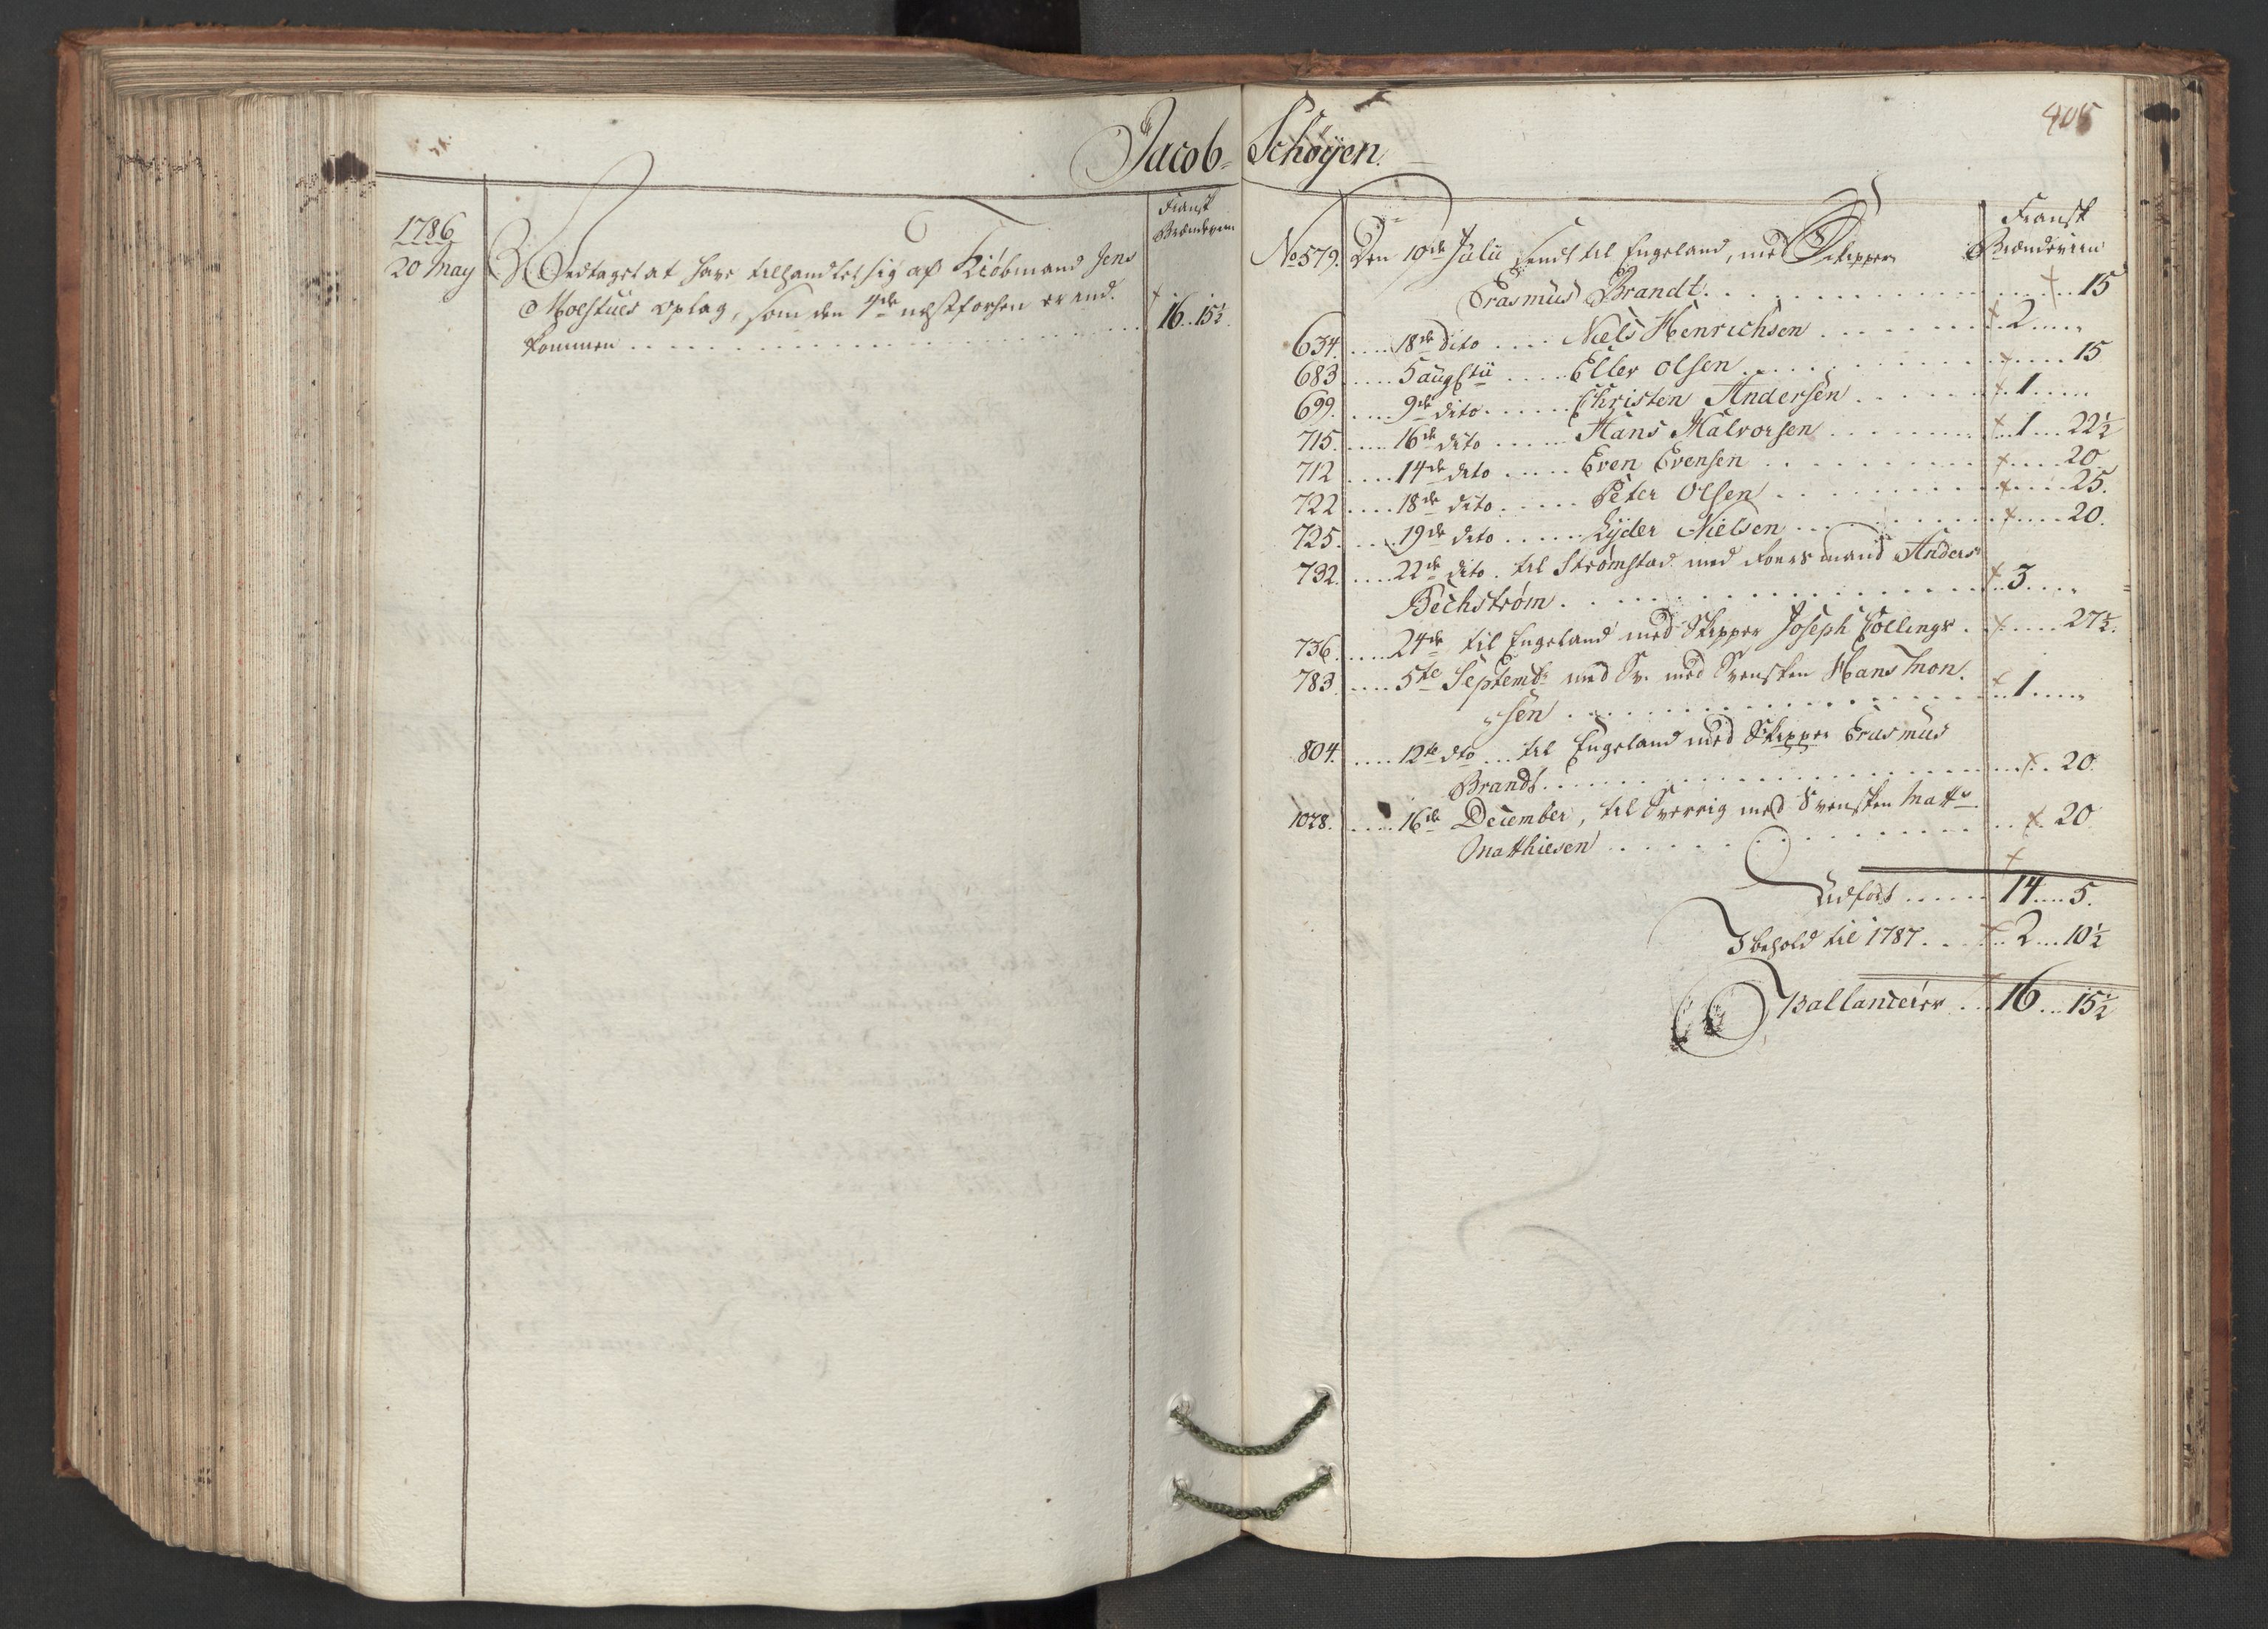 405
Jacob Schøyen.
1786
Fransk
Brændeviin
20 May Vedtaget at have tilhandlet sig af Kiøbmand Jens
Moestues oplag, som den 4de næstforhen er and-
kommen . . . 16 . . 15½
Fransk
Brændeviin
No 579. Den 10de Julii sendt til Engeland, med Skipper
Erasmus Brandt . . . 15
634. . . . 18de dito . . . Niels Henrichsen . . . 2 . . . "
683 . . . 5 augstii . . . Eller Olsen . . . 15
699. . . . 9de dito . . . Christen Andersen . . . 1 . . . "
715. . . . 16de dito . . . Hans Halvorsen . . . 1 . . . 22½
712 . . . 14de dito . . . Even Evensen . . . 20
722 . . . 18de dito . . . Peter Olsen . . . 25.
725. . . . 19de dito . . . Lyder Nielsen . . . 20.
732. . . . 22de dito . til Strømstad med Foersmand Anders
Bechstrøm . . . 3 . . . "
736 . . . 24de til Engeland med Skipper Joseph Collings . . . 27½.
783 . . . 5te Septembr med Sv. med Svensken Hans Mon-
"sen . . . 1 . . . "
804. . . . 12te dto . . . til Engeland med Skipper Erasmus
Brandt . . . 20.
1028. . . . 16de December, til Sverrig med Svensken Matts
Matthiesen . . . 20
Udført . . . 14 . . . 5.
I behold til 1787 . . . 2 . . . 10½
Ballancerer . . . 16 . . . 15½